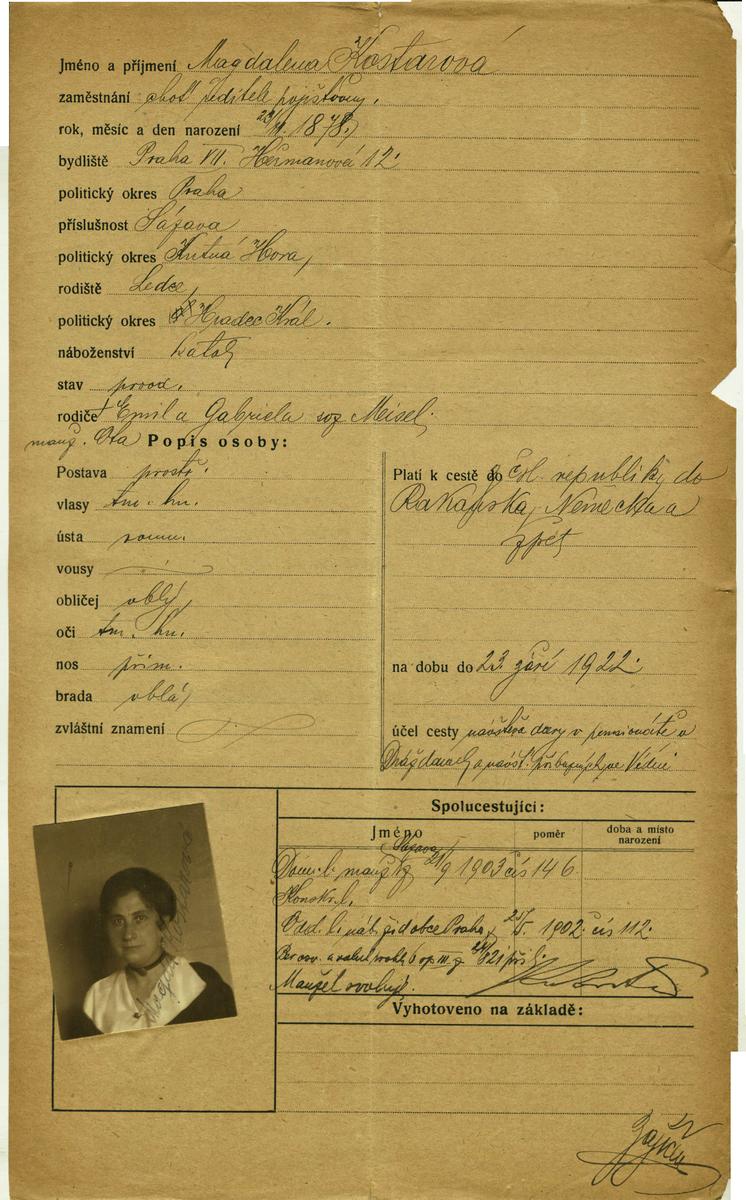 Jméno a příjmení Magdalena Kostarová
zaměstnání choť ředitele pojišťovny.
rok, měsíc a den narození 1878.
bydliště Praha VII. Heřmanová 12.
politický okres Praha
příslušnost Sázava
politický okres Kutná Hora,
rodiště Ledce,
politický okres Hradec Král.
náboženství katol
stav provd.
rodiče † Emil a Gabriela roz Meisel.
manž. Ota Popis osoby:
Postava prostř.
vlasy tm. hn.
ústa soum.
vousy
obličej oblý
oči tm. hn.
nos přím.
brada oblá,
zvláštní znamení
Platí k cestě do čsl. republiky do
Rakouska, Německa a
zpět
na dobu do 23. září 1922.
účel cesty návštěva dcery v pensionátě v
Drážďanech a návšt. příbuzných ve Vídni
Spolucestující:
Jméno
poměr
doba a místo
narození
Sázava
Dom. l. manž. 21/9 1903 čís 146
Konskr. l.
Odd. l. náb. žid obce Praha 1902 čís 112.
Manžel svobyt.
Vyhotoveno na základě: